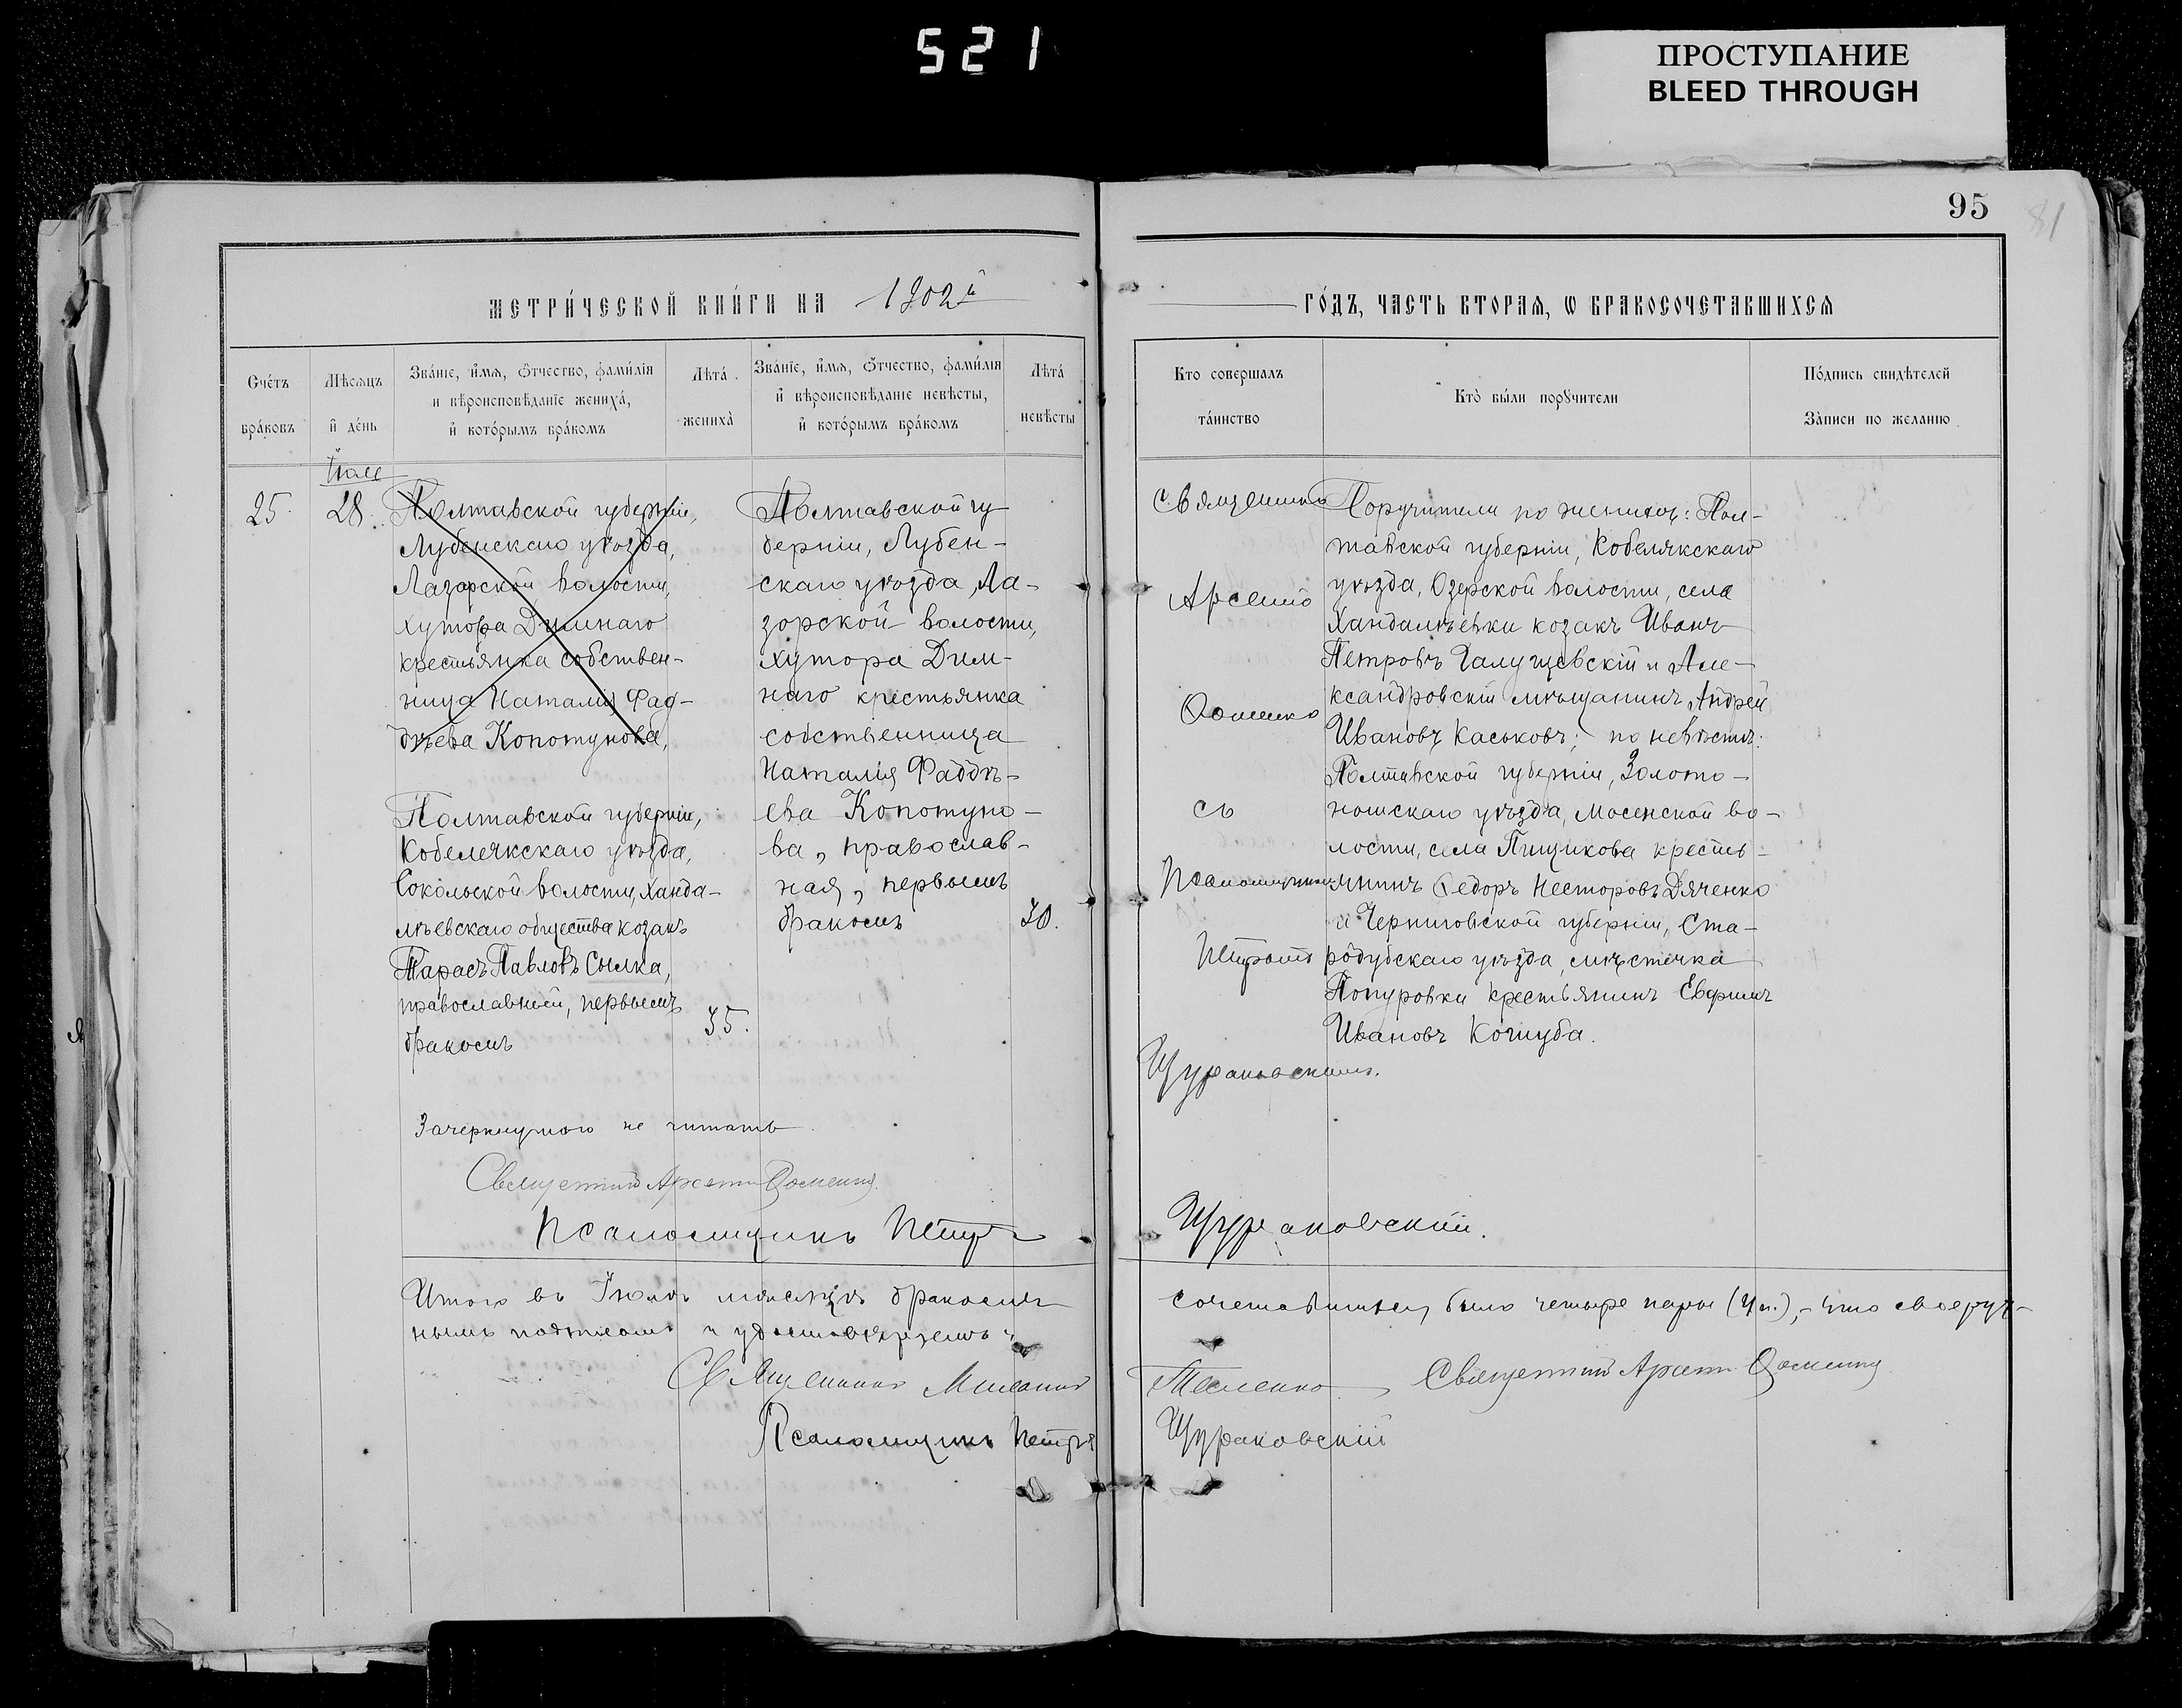 521
ПРОСТУПАНИЕ
BLEED THROUGH
95
81
МЕТРИ́ЧЕСКОЙ КНИ́ГИ НА 1902й
ГО́ДЪ, ЧАСТЬ ВТОРАѦ, Ѡ БРАКОСОЧЕТАВШИХСѦ
Сче́тъ
бра́ковъ
Мѣсѧцъ
и҆ де́нь
Зва́нїе, и҆́мѧ, ѻ҆́тчество, фами́лїѧ
и вѣроисповѣ́данїе жениха́,
и҆ кото́рымъ бра́комъ
Лѣта́
жениха̀
Зва́нїе, и҆́мѧ, ѻ҆́тчество, фами́лїѧ
и҆ вѣроисповѣ́данїе невѣ́сты,
и҆ кото́рымъ бра́комъ
Лѣта́
невѣ́сты
Кто совершалъ
та́инство
Кто̀ бы́ли порꙋчители
По́дпись свидѣ́телей
За́писи по желанїю
Іюль
25.
28.
Полтавской губерніи,
Лубенскаго уѣзда,
Лазорской волости,
хутора Димнаго
крестьянка собствен-
ница Наталія Фад-
дѣева Копотунова,
Полтавской губерніи,
Кобелякскаго уѣзда,
Сокольской волости, Ханда-
лѣевскаго общества козакъ
Тарасъ Павловъ Сылка,
православный, первымъ
бракомъ
35.
Полтавской гу-
берніи, Лубен-
скаго уѣзда, Ла-
зорской волости,
хутора Дим-
наго крестьянка
собственница
Наталія Фаддѣ-
ева Копотуно-
ва, православ-
ная, первымъ
бракомъ
30.
Священникъ
Арсеній
Ѳоменко
съ
Псаломщикомъ
Петромъ
Щураковскимъ.
Поручители по женихѣ: Пол-
тавской губерніи, Кобелякскаго
уѣзда, Озерской волости, села
Хандалѣевки козакъ Иванъ
Петровъ Галущевскій и Але-
ксандровскій мѣщанинъ Андрей
Ивановъ Каськовъ; по невѣстѣ:
Полтавской губерніи, Золото-
ношскаго уѣзда, Мосенской во-
лости, села Пищикова кресть-
янинъ Ѳедоръ Несторовъ Дяченко
и Черниговской губерніи, Ста-
родубскаго уѣзда, мѣстечка
Попуровки крестьянинъ Евфимъ
Ивановъ Кочкуба.
Зачеркнутаго не читать
Священникъ Арсеній Ѳоменко.
Псаломщикъ Петръ Щураковскій.
Итого въ Іюлѣ мѣсяцѣ бракомъ сочетавшихся было четыре пары (4 п.), – что своеруч-
нымъ подписомъ и удостовѣряемъ:
Священникъ Тесленко Священникъ Арсеній Ѳоменко
Псаломщикъ Петръ Щураковскій